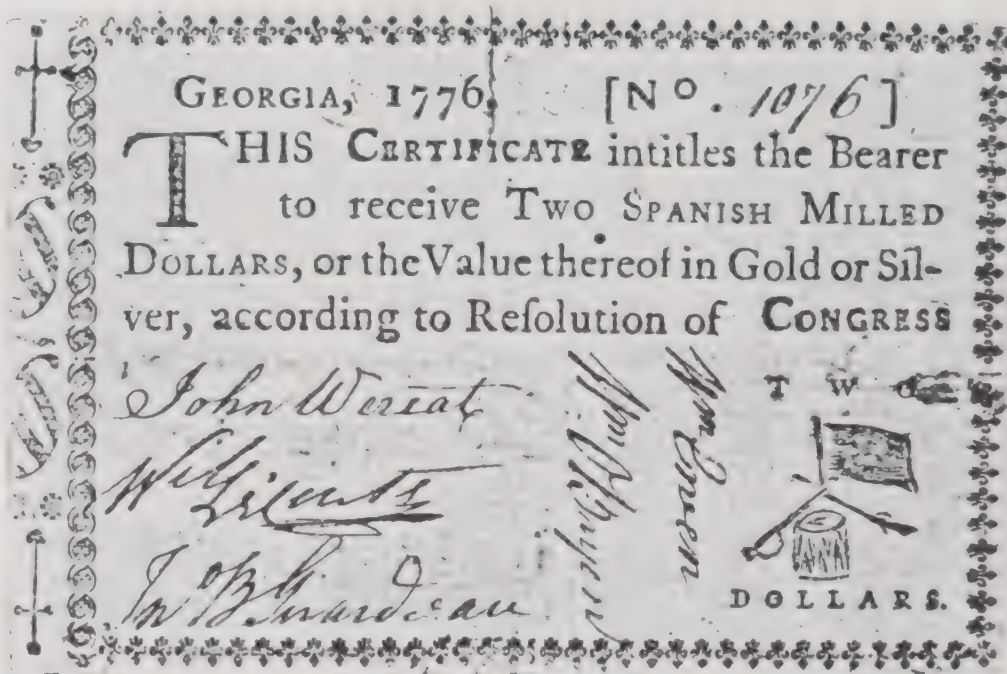 GEORGIA, 1776. [No. 1076]
THIS CERTIFICATE intitles the Bearer
to receive TWO SPANISH MILLED
DOLLARS, or the Value thereof in Gold or Sil-
ver, according to Reſolution of CONGRESS
John Wereat
TWO
DOLLARS.
Jno B Girardeau
Wm Brown